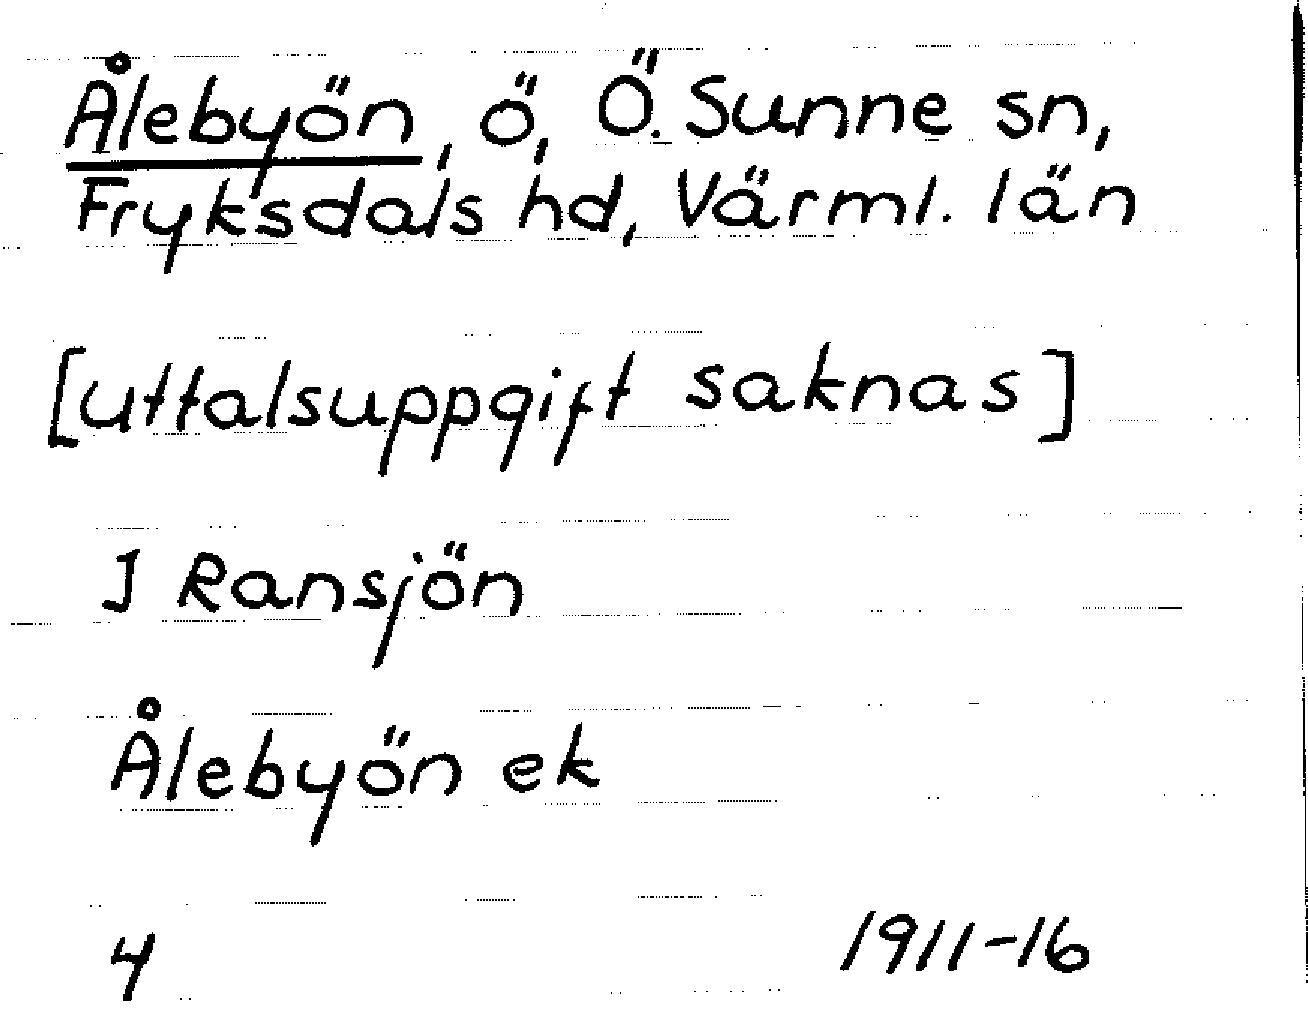 Ålebyön, ö, Ö. Sunne sn,
Fryksdals hd, Värml. län
[uttalsuppgift saknas]
I Ransjön
Ålebyön ek
4 1911-16